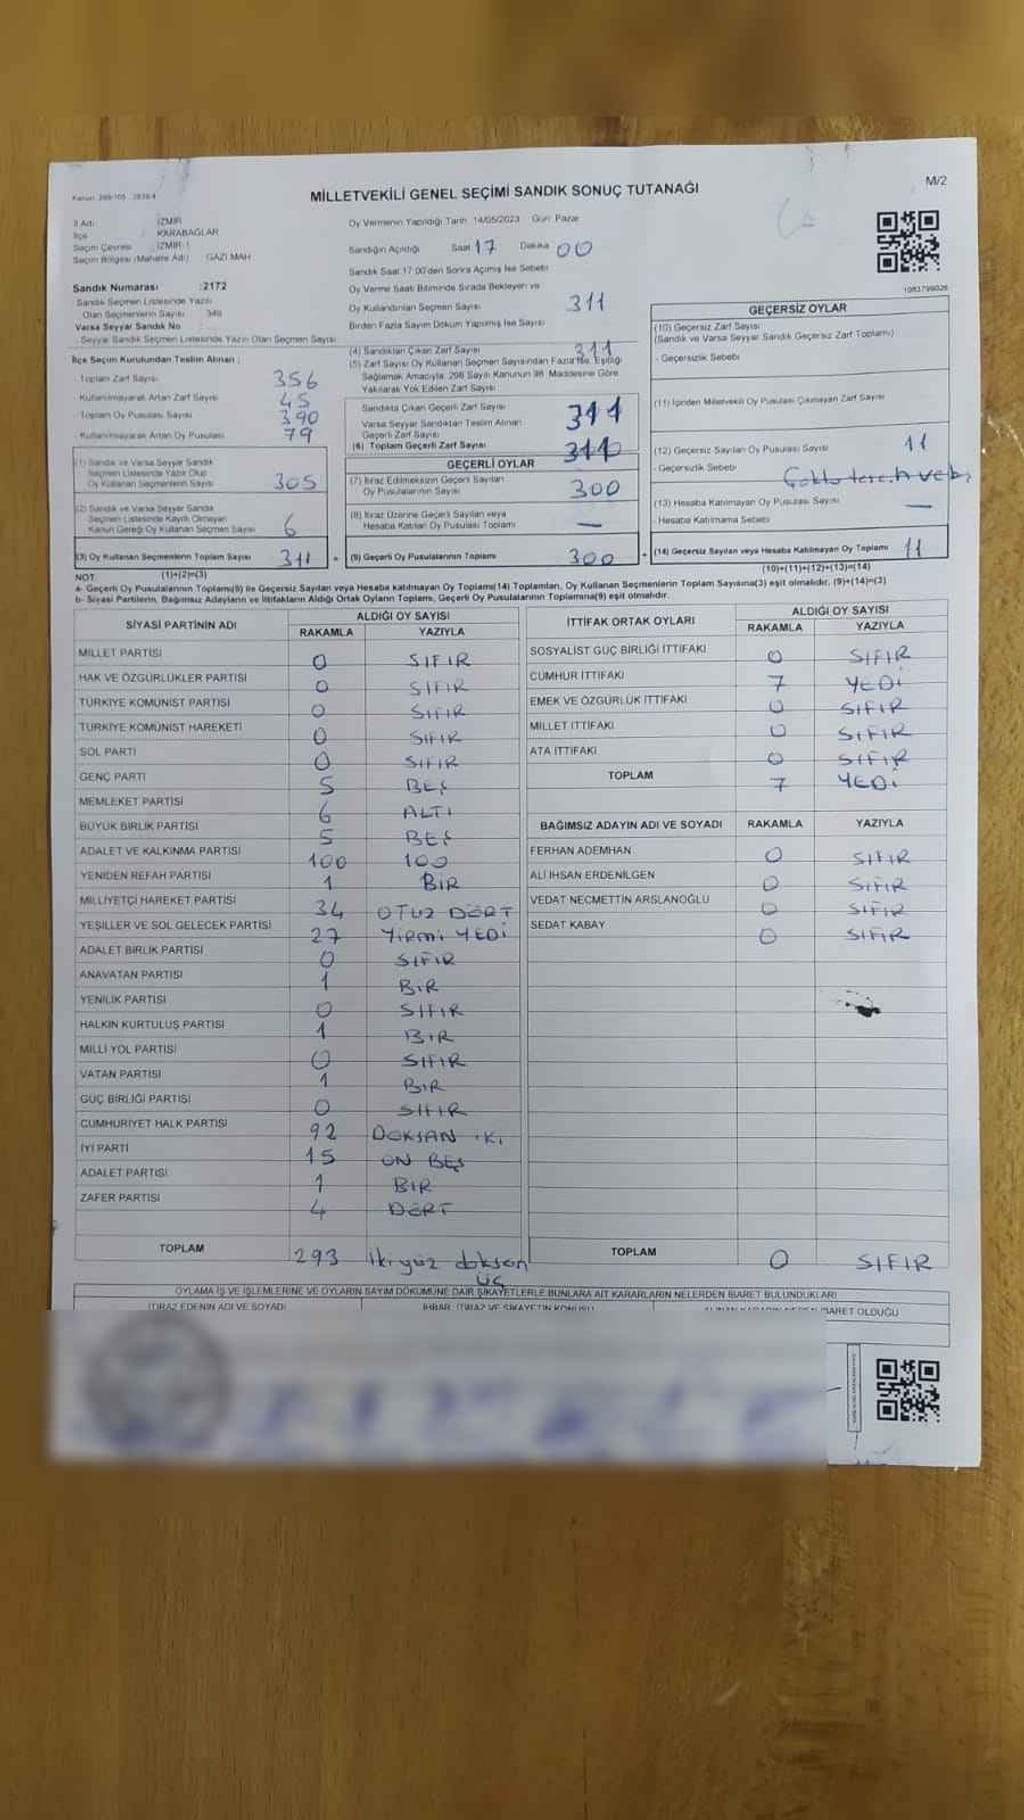 MİLLETVEKİLİ GENEL SEÇİMİ SANDIK SONUÇ TUTANAĞI
M/2
İl Adı : İZMİR
İlçe KARABAĞLAR
Seçim Çevresi İZMİR-1
Seçim Bölgesi (Mahalle Adı) GAZİ MAH
Sandık Numarası :2172
Sandık Seçmen Listesinde Yazılı
Olan Seçmenlerin Sayısı 349
Varsa Seyyar Sandık No
Seyyar Sandık Seçmen Listesinde Yazılı Olan Seçmen Sayısı
Oy Vermenin Yapıldığı Tarih 14/05/2023 Gün Pazar
Sandığın Açıldığı Saat 17 Dakika 00
Sandık Saat 17:00'den Sonra Açılmış İse Sebebi
Oy Verme Saati Bitiminde Sırada Bekleyen ve
Oy Kullandırılan Seçmen Sayısı 311
Birden Fazla Sayım Döküm Yapılmış İse Sayısı
1083799026
İlçe Seçim Kurulundan Teslim Alınan :
- Toplam Zarf Sayısı 356
- Kullanılmayarak Artan Zarf Sayısı 45
- Toplam Oy Pusulası Sayısı 390
- Kullanılmayarak Artan Oy Pusulası 79
(1) Sandık ve Varsa Seyyar Sandık
Seçmen Listesinde Yazılı Olup
Oy Kullanan Seçmenlerin Sayısı 305
(2) Sandık ve Varsa Seyyar Sandık
Seçmen Listesinde Kayıtlı Olmayan
Kanun Gereği Oy Kullanan Seçmen Sayısı 6
(3) Oy Kullanan Seçmenlerin Toplam Sayısı 311
(1)+(2)=(3)
(4) Sandıktan Çıkan Zarf Sayısı 311
(5) Zarf Sayısı Oy Kullanan Seçmen Sayısından Fazla İse, Eşitliği
Sağlamak Amacıyla, 298 Sayılı Kanunun 98. Maddesine Göre
Yakılarak Yok Edilen Zarf Sayısı
Sandıkta Çıkan Geçerli Zarf Sayısı 311
Varsa Seyyar Sandıktan Teslim Alınan
Geçerli Zarf Sayısı
(6) Toplam Geçerli Zarf Sayısı 311
GEÇERLİ OYLAR
(7) İtiraz Edilmeksizin Geçerli Sayılan
Oy Pusulalarının Sayısı 300
(8) İtiraz Üzerine Geçerli Sayılan veya
Hesaba Katılan Oy Pusulası Toplamı —
(9) Geçerli Oy Pusulalarının Toplamı 300
GEÇERSİZ OYLAR
(10) Geçersiz Zarf Sayısı
(Sandık ve Varsa Seyyar Sandık Geçersiz Zarf Toplamı)
- Geçersizlik Sebebi
(11) İçinden Milletvekili Oy Pusulası Çıkmayan Zarf Sayısı
(12) Geçersiz Sayılan Oy Pusulası Sayısı 11
- Geçersizlik Sebebi
(13) Hesaba Katılmayan Oy Pusulası Sayısı —
Hesaba Katılmama Sebebi
(14) Geçersiz Sayılan veya Hesaba Katılmayan Oy Toplamı 11
(10)+(11)+(12)+(13)=(14)
NOT
a- Geçerli Oy Pusulalarının Toplamı(9) ile Geçersiz Sayılan veya Hesaba katılmayan Oy Toplamı(14) Toplamları, Oy Kullanan Seçmenlerin Toplam Sayısına(3) eşit olmalıdır. (9)+(14)=(3)
b- Siyasi Partilerin, Bağımsız Adayların ve İttifakların Aldığı Ortak Oyların Toplamı, Geçerli Oy Pusulalarının Toplamına(9) eşit olmalıdır.
SİYASİ PARTİNİN ADI ALDIĞI OY SAYISI
RAKAMLA YAZIYLA
MİLLET PARTİSİ 0 SIFIR
HAK VE ÖZGÜRLÜKLER PARTİSİ 0 SIFIR
TÜRKİYE KOMÜNİST PARTİSİ 0 SIFIR
TÜRKİYE KOMÜNİST HAREKETİ 0 SIFIR
SOL PARTİ 0 SIFIR
GENÇ PARTİ 5 BEŞ
MEMLEKET PARTİSİ 6 ALTI
BÜYÜK BİRLİK PARTİSİ 5 BEŞ
ADALET VE KALKINMA PARTİSİ 100 100
YENİDEN REFAH PARTİSİ 1 BİR
MİLLİYETÇİ HAREKET PARTİSİ 34 OTUZ DÖRT
YEŞİLLER VE SOL GELECEK PARTİSİ 27 YİRMİ YEDİ
ADALET BİRLİK PARTİSİ 0 SIFIR
ANAVATAN PARTİSİ 1 BİR
YENİLİK PARTİSİ 0 SIFIR
HALKIN KURTULUŞ PARTİSİ 1 BIR
MİLLİ YOL PARTİSİ 0 SIFIR
VATAN PARTİSİ 1 BIR
GÜÇ BİRLİĞİ PARTİSİ 0 SIFIR
CUMHURİYET HALK PARTİSİ 92 DOKSAN İKİ
İYİ PARTİ 15 ON BEŞ
ADALET PARTİSİ 1 BIR
ZAFER PARTİSİ 4 DÖRT
TOPLAM 293 İki yüz doksan üç
İTTİFAK ORTAK OYLARI ALDIĞI OY SAYISI
RAKAMLA YAZIYLA
SOSYALİST GÜÇ BİRLİĞİ İTTİFAKI 0 SIFIR
CUMHUR İTTİFAKI 7 YEDİ
EMEK VE ÖZGÜRLÜK İTTİFAKI 0 SIFIR
MİLLET İTTİFAKI 0 SIFIR
ATA İTTİFAKI 0 SIFIR
TOPLAM 7 YEDİ
BAĞIMSIZ ADAYIN ADI VE SOYADI RAKAMLA YAZIYLA
FERHAN ADEMHAN 0 SIFIR
ALİ İHSAN ERDENİLGEN 0 SIFIR
VEDAT NECMETTİN ARSLANOĞLU 0 SIFIR
SEDAT KABAY 0 SIFIR
TOPLAM 0 SIFIR
OYLAMA İŞ VE İŞLEMLERİNE VE OYLARIN SAYIM DÖKÜMÜNE DAİR ŞİKAYETLERLE BUNLARA AİT KARARLARIN NELERDEN İBARET BULUNDUKLARI
İTİRAZ EDENİN ADI VE SOYADI